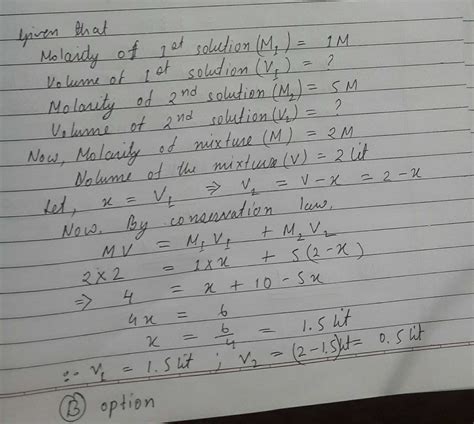 Given that
Molarity of 1st solution (M₁) = 1M
Volume of 1st solution (V₁) = ?
Molarity of 2nd solution (M₂) = 5M
Volume of 2nd solution (V₂) = ?
Now, Molarity of mixture (M) = 2M
Volume of the mixture (V) = 2 lit
Let, x = V₁ ⇒ V₂ = V-x = 2-x
Now, By conservation law,
MV = M₁V₁ + M₂V₂
2×2 = 1×x + 5(2-x)
⇒ 4 = x + 10 - 5x
4x = 6
x = 6/4 = 1.5 lit
∵ V₁ = 1.5 lit ; V₂ = (2-1.5)lit = 0.5 lit
(B) option